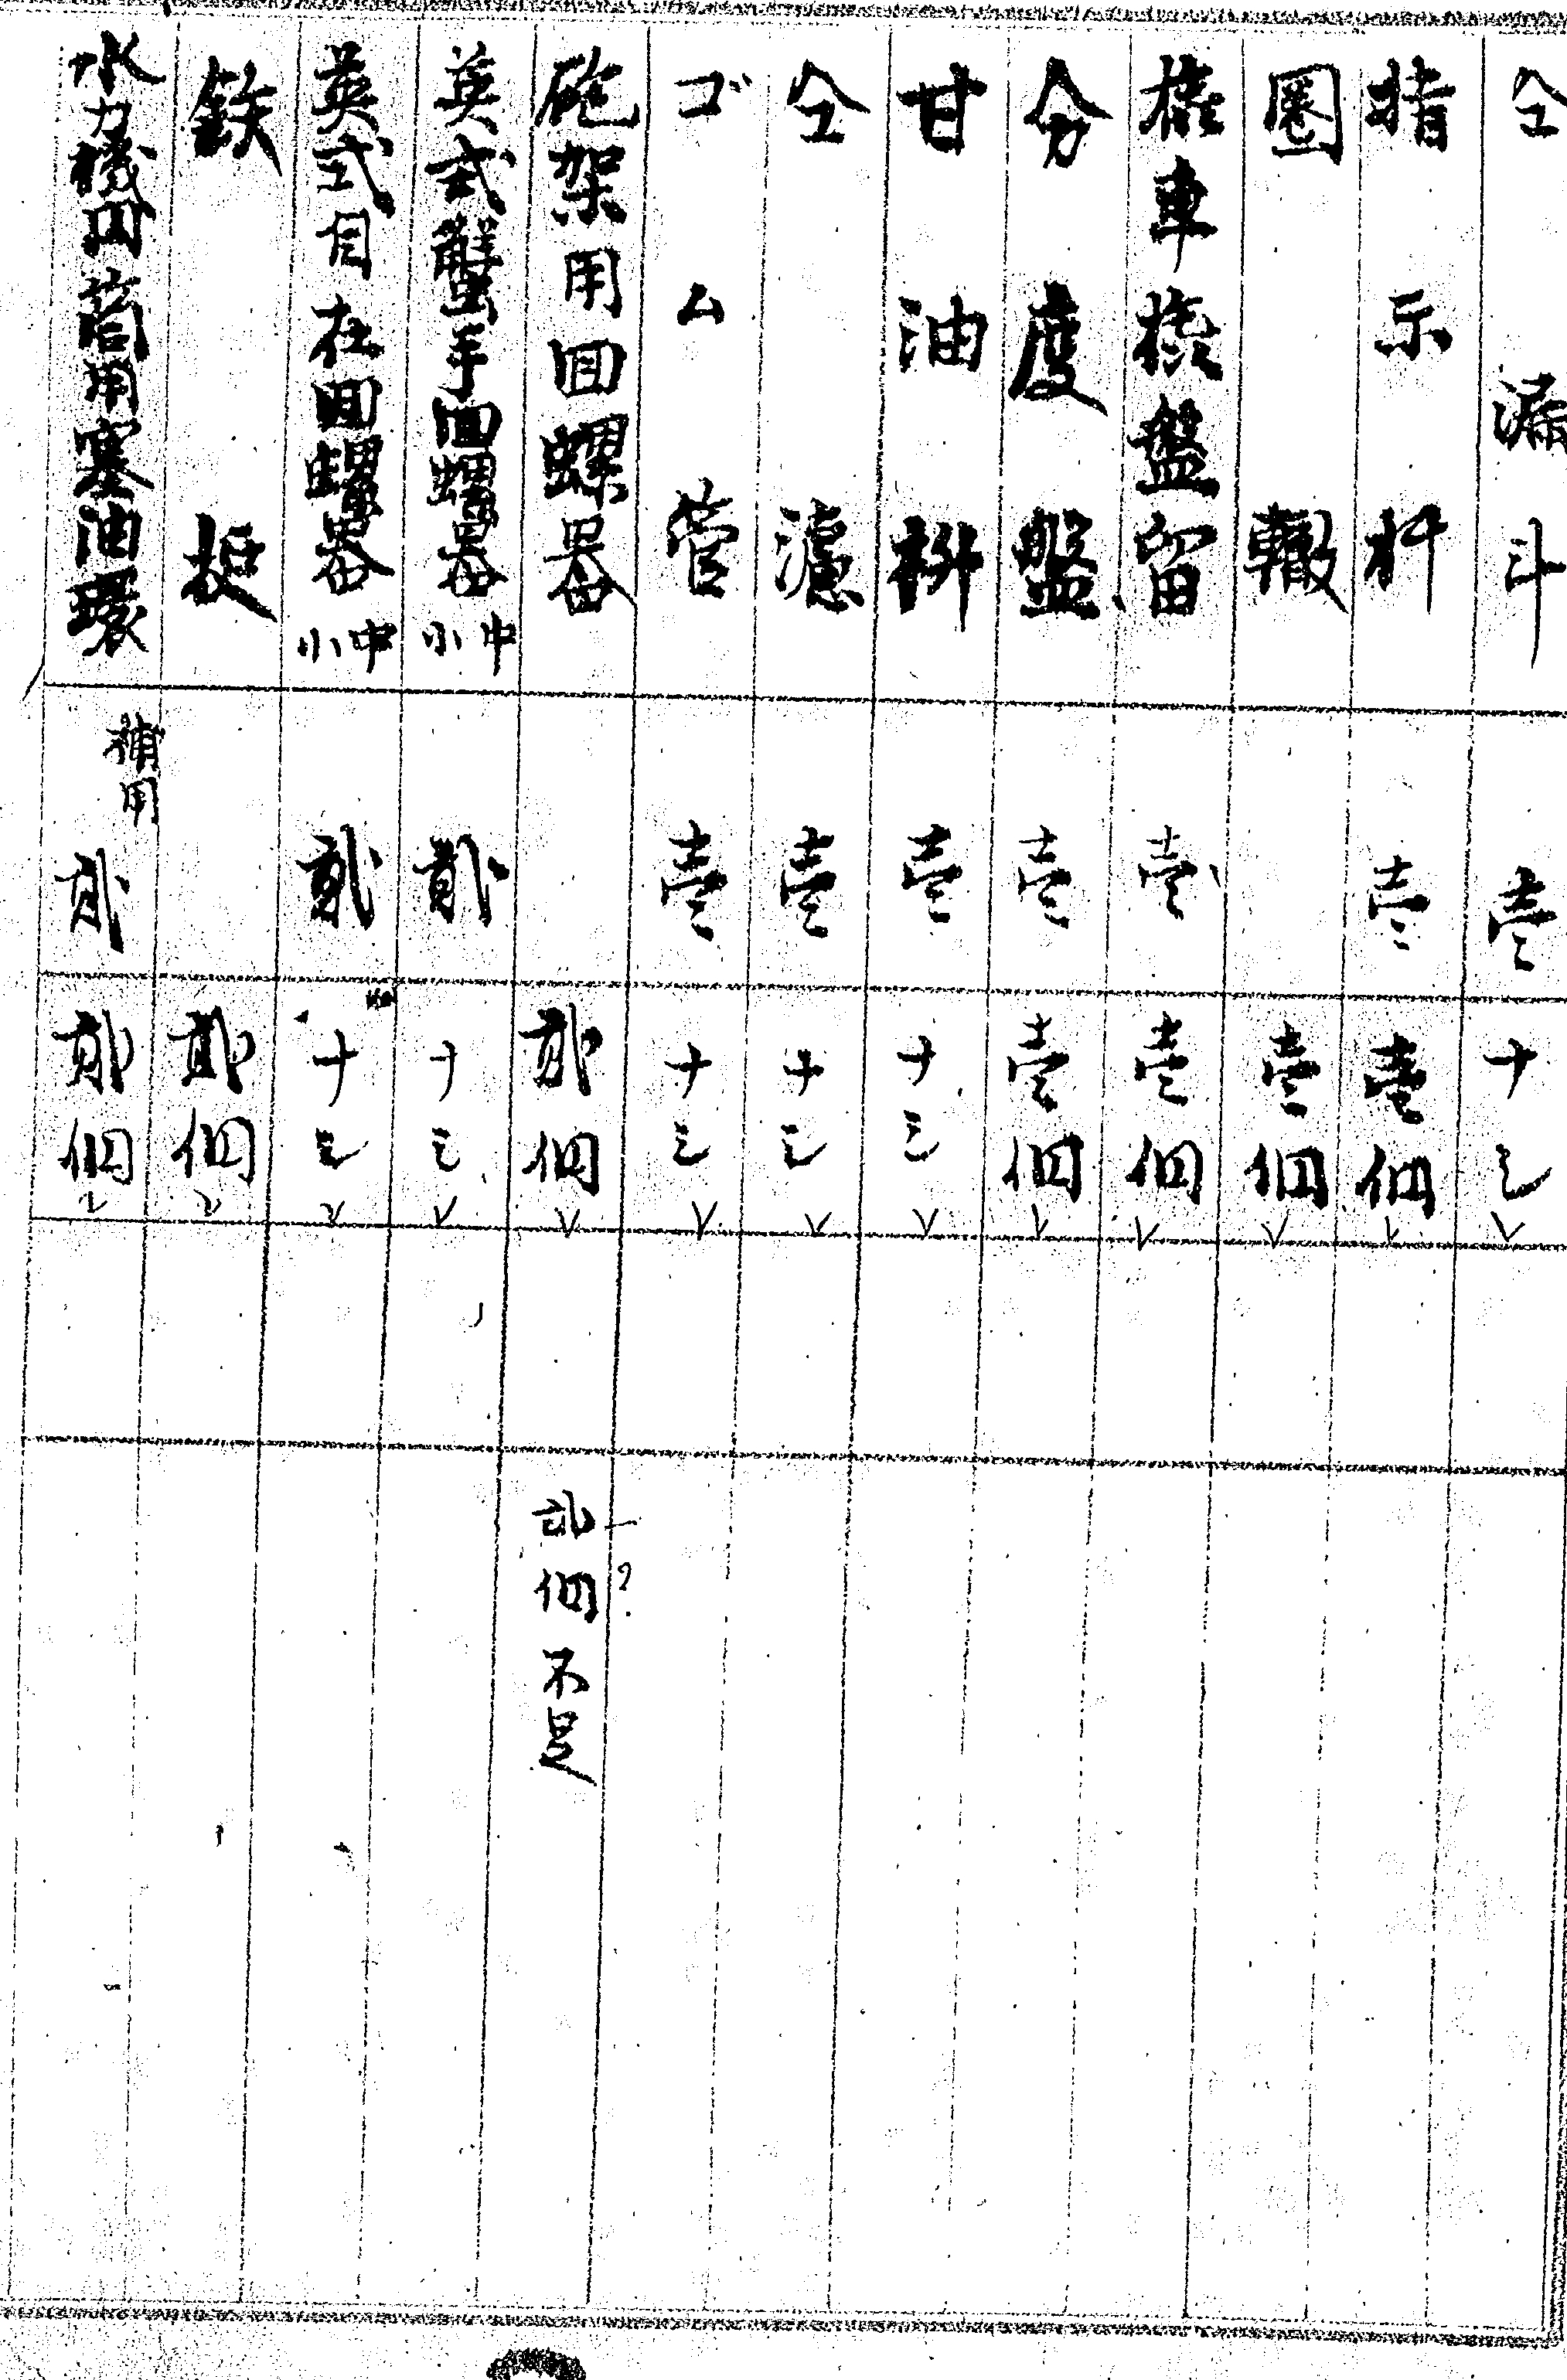 仝漏斗 壱 ナシ
指示杆 壱 壱個
圏轍 壱個
横車横盤留 壱 壱個
分度盤 壱 壱個
甘油 壱 ナシ
仝濾 壱 ナシ
ゴム管 壱 ナシ
砲架用回螺器 弐個 弐個不足 ?
英式蟹手回螺器 中小 弐 ナシ
英式自在回螺器 中小 弐 ナシ
鉄梃 弐個
水力機回筒用塞油環 補用 弐 弐個